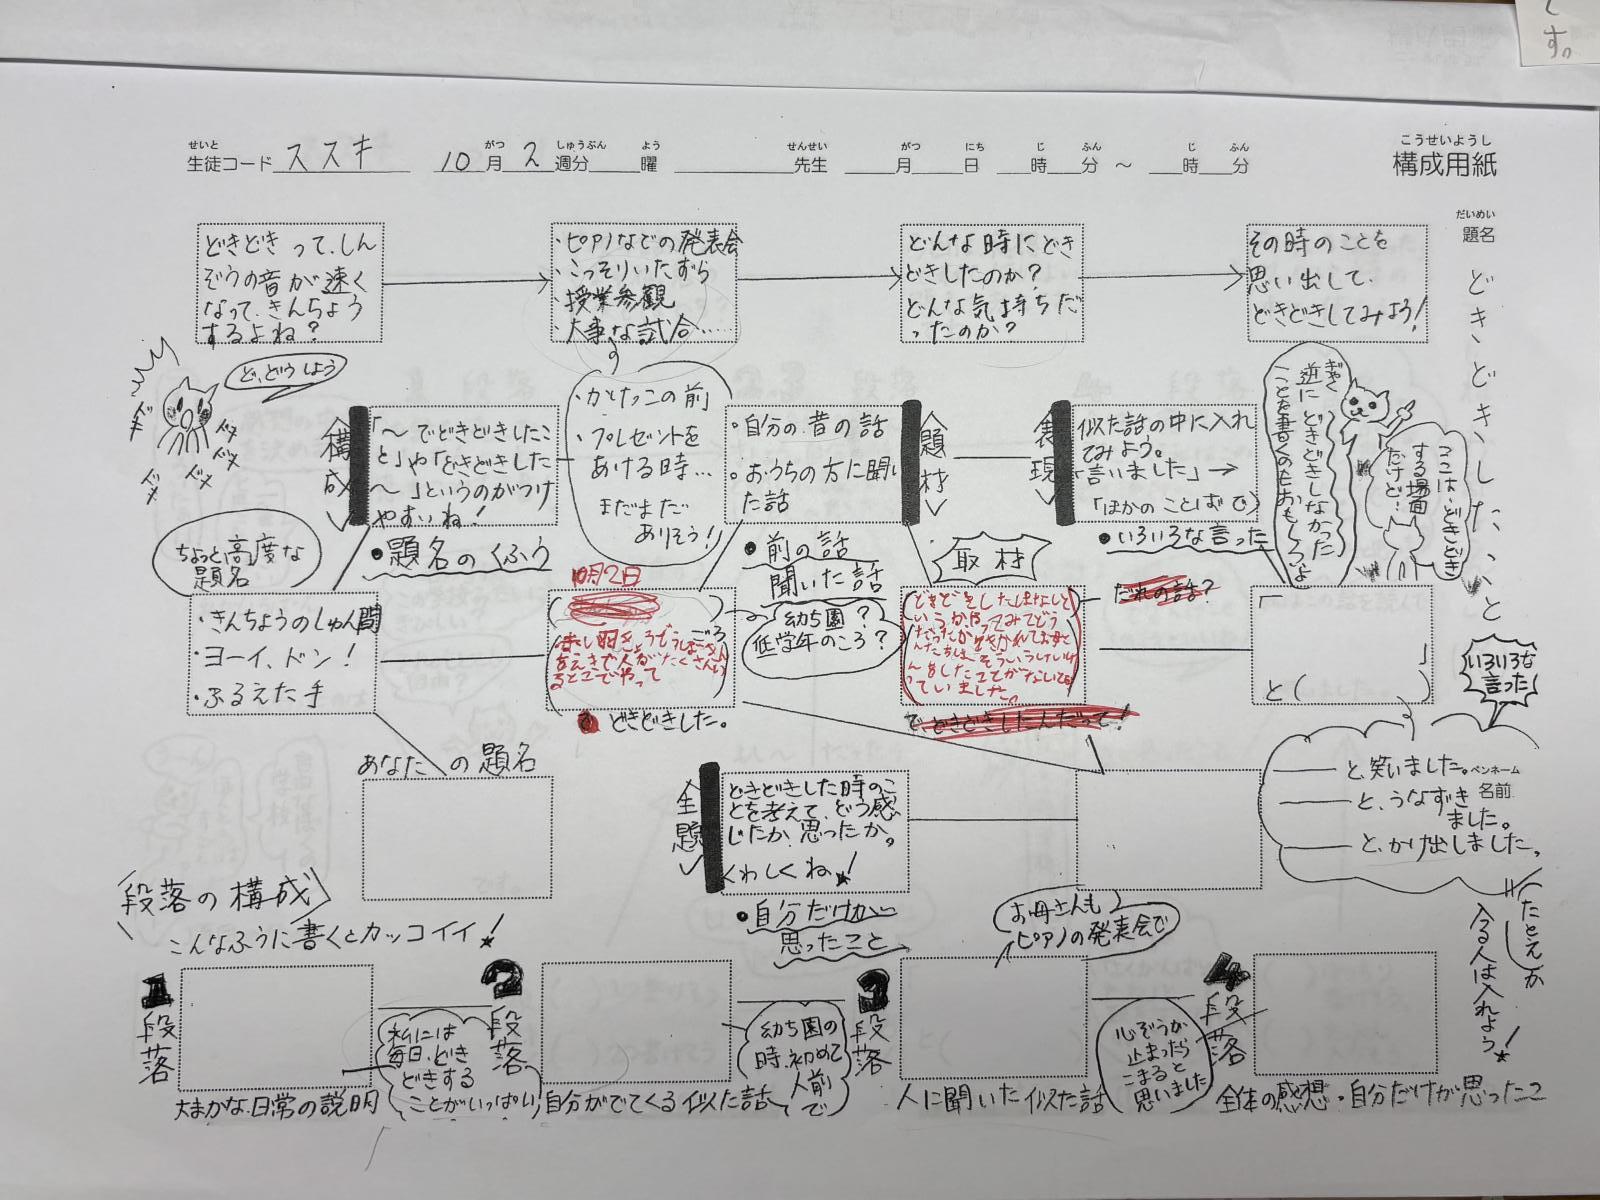 す。
せいと
生徒コード ススキ
がつ しゅうぶん よう
10月2週分 曜
せんせい
先生
がつ にち じ ふん じ ふん
月 日 時 分 ～ 時 分
こうせいようし
構成用紙
だいめい
題名
どきどきしたこと
どきどきって、しん
ぞうの音が速く
なって、きんちょう
するよね？
・ピアノなどの発表会
・こっそりいたずら
・授業参観
・大事な試合……
どんな時にどき
どきしたのか？
どんな気持ちだ
ったのか？
その時のことを
思い出して、
どきどきしてみよう！
ど、どうしよう
ドキ
ドキドキ
ドキ
構成
「～でどきどきしたこ
と」や「どきどきした
～」というのがつけ
やすいね！
・かけっこの前
・プレゼントを
あげる時…
まだまだ
ありそう！
・自分の昔の話
・おうちの方に聞い
た話
題材
表現
似た話の中に入れ
てみよう。
「言いました」→
「ほかのことばで」
ぎゃく
逆にどきどきしなかった
ことを書くのもおもしろいよ
ここは、どきどき
する場面
だけど…
ちょっと高度な
題名
●題名のくふう
●前の話
聞いた話
取材
●いろいろな言った
・きんちょうのしゅん間
・ヨーイ、ドン！
・ふるえた手
10月2日
ごろ
赤い羽
をえきで人がたくさんい
るとこでやって
どきどきした。
幼ち園？
低学年のころ？
だれの話？
で、どきどきしたんだって！
「
」
と（ ）
いろいろな
言った
――と、笑いました。
――と、うなずき
ました。
――と、かけ出しました。
ペンネーム
名前
あなたの題名
主題
どきどきした時のこ
とを考えて、どう感
じたか、思ったか。
くわしくね！
●自分だけが
思ったこと
お母さんも
ピアノの発表会で
たとえが
入る人は入れよう！
段落の構成
こんなふうに書くとカッコイイ！
1段落
大まかな日常の説明
私には
毎日、どき
どきする
ことがいっぱい
2段落
自分がでてくる似た話
幼ち園の
時、初めて
人前で
3段落
人に聞いた似た話
心ぞうが
止まったら
こまると
思いました
4段落
全体の感想・自分だけが思ったこ